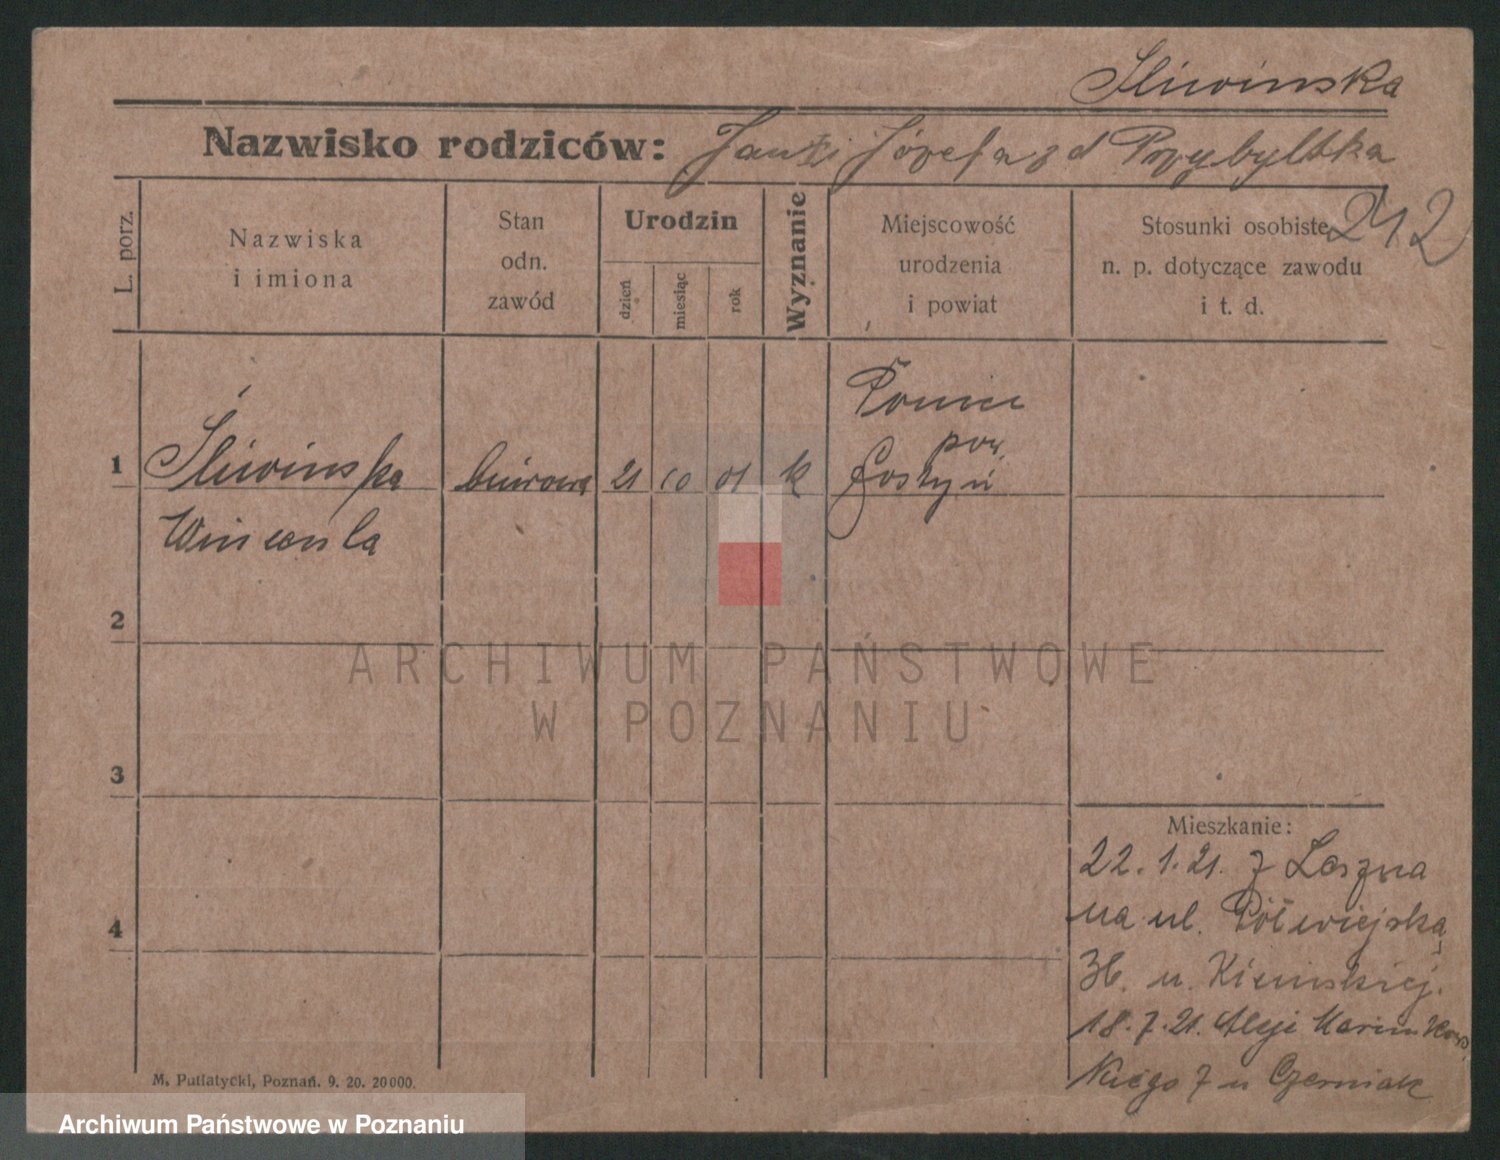 Śliwinska
Nazwisko rodziców: Józefa z d Przybylska
242
L. porz.
Nazwiska
i imiona
Stan
odn.
zawód
Urodzin
dzień
miesiąc
rok
Wyznanie
Miejscowość
urodzenia
i powiat
Stosunki osobiste
n. p. dotyczące zawodu
i t. d.
1
Śliwinska
biurowa
21
10
01
k
Poniec
pow.
Gostyń
2
ARCHIWUM PAŃSTWOWE
W POZNANIU
3
Mieszkanie:
22.1.21. z Leszna
na ul. Półwiejska
36. u.
4
18.7.21. Aleje Marcinkows
kiego 7 u Czerniak
M. Putiatycki, Poznań. 9. 20. 20000.
Archiwum Państwowe w Poznaniu